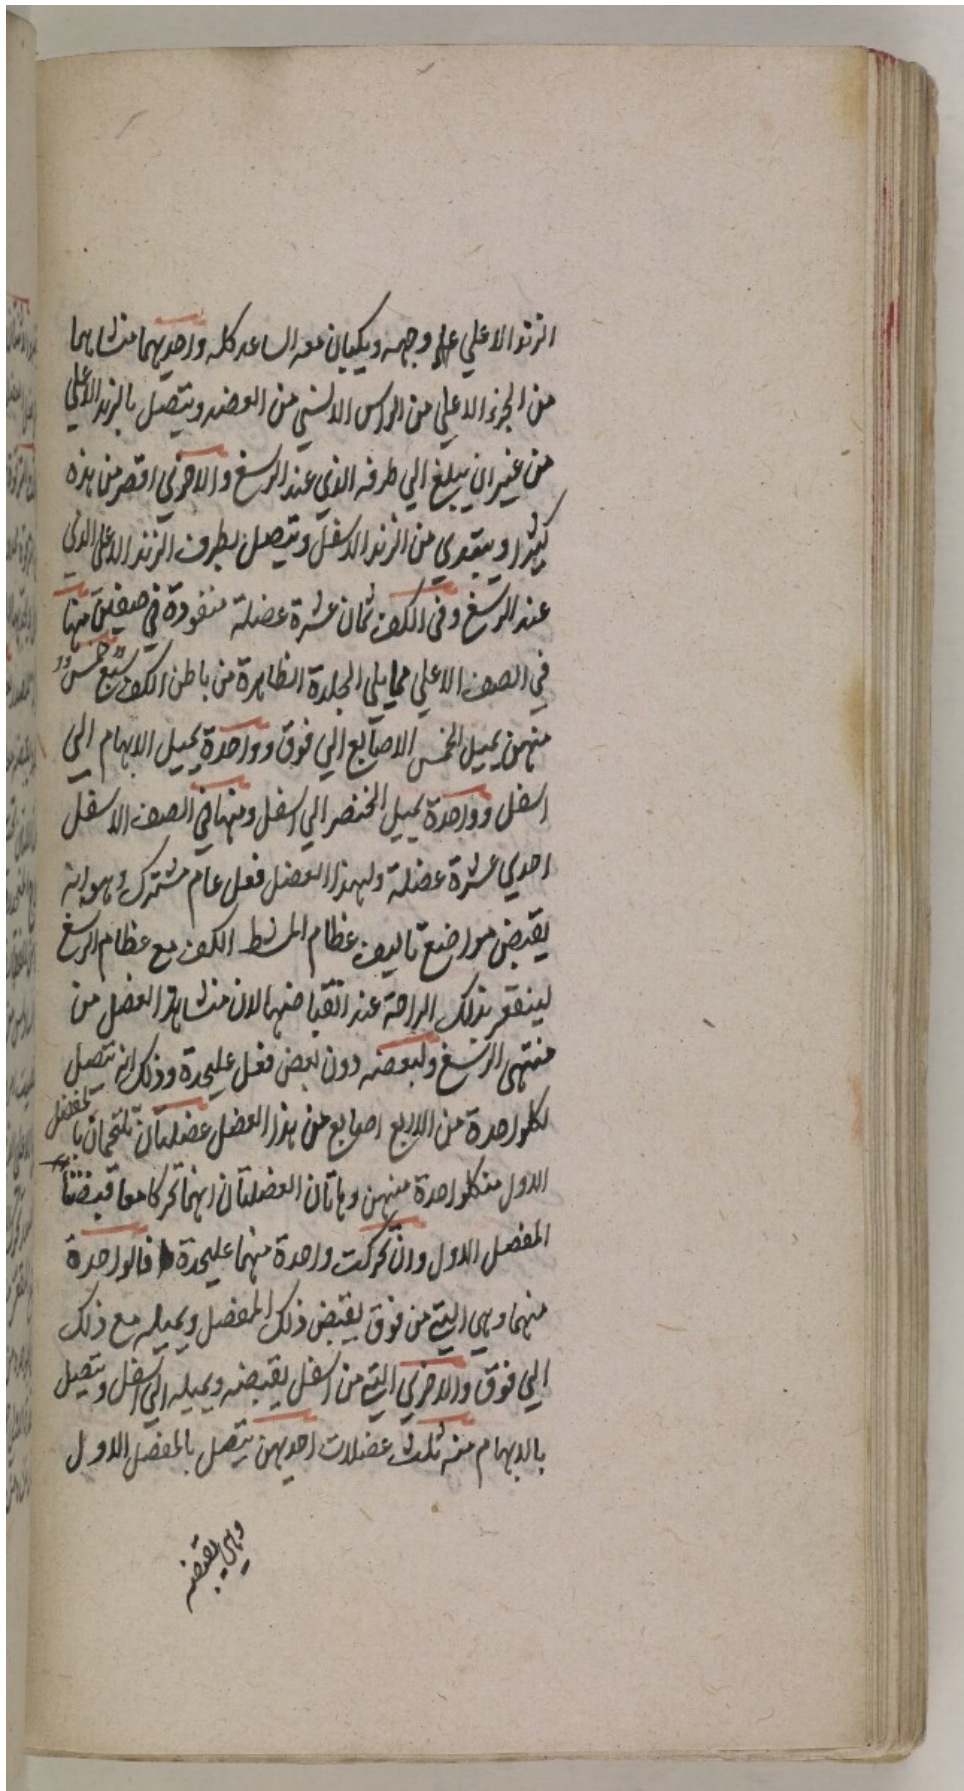 الزند الاعلي علي وجهه ويكبان معه الساعد كله واحديهما منشاهما
من الجزء الاعلي من الراس الانسي من العضد ويتصل بالزند الاعلي
من غير ان يبلغ الي طرفه الذي عند الرسغ والاخري اقصر من هذه
كثيرا ويبتدي من الزند الاسفل ويتصل بطرف الزند الاعلي الذي
عند الرسغ وفي الكف ثمان عشرة عضلة منضودة في صفين منها
في الصف الاعلي مما يلي الجلدة الظاهرة من باطن الكف سبع خمس
منهن يميل الخمس الاصابع الي فوق وواحدة يميل الابهام الي
اسفل وواحدة يميل الخنصر الي اسفل ومنها في الصف الاسفل
احدي عشرة عضلة ولهذا العضل فعل عام مشترك وهو انه
يقبض مواضع تاليف عظام المشط الكف مع عظام الرسغ
لينقعر بذلك الراحة عند انقباضها لان منشا هذا العضل من
منتهي الرسغ ولبعضه دون بعض فعل عليحدة وذلك انه يتصل
لكل واحدة من الاربع اصابع من هذا العضل عضلتان تلتحمان بالمفصل
الاول من كل واحدة منهن وهاتان العضلتان انهما تحركا معا قبضتا
المفصل الاول وان تحركت واحدة منهما عليحدة فالواحدة
منهما وهي التي من فوق يقبض ذلك المفصل ويميله مع ذلك
الي فوق والاخري التي من اسفل يقبضه ويميله الي اسفل ويتصل
بالابهام منه ثلث عضلات احديهن يتصل بالمفصل الاول
وهي يقبضه